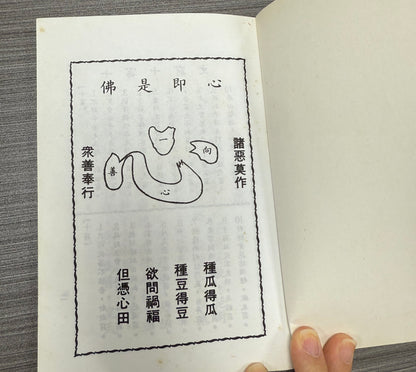 心即是佛
諸惡莫作
一
向
善
心
眾善奉行
種瓜得瓜
種豆得豆
欲問禍福
但憑心田